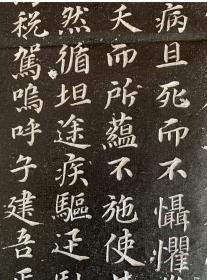 病且死而不懾懼
夭而所蘊不施使
然循坦途疾驅迂
稅駕嗚呼子建吾